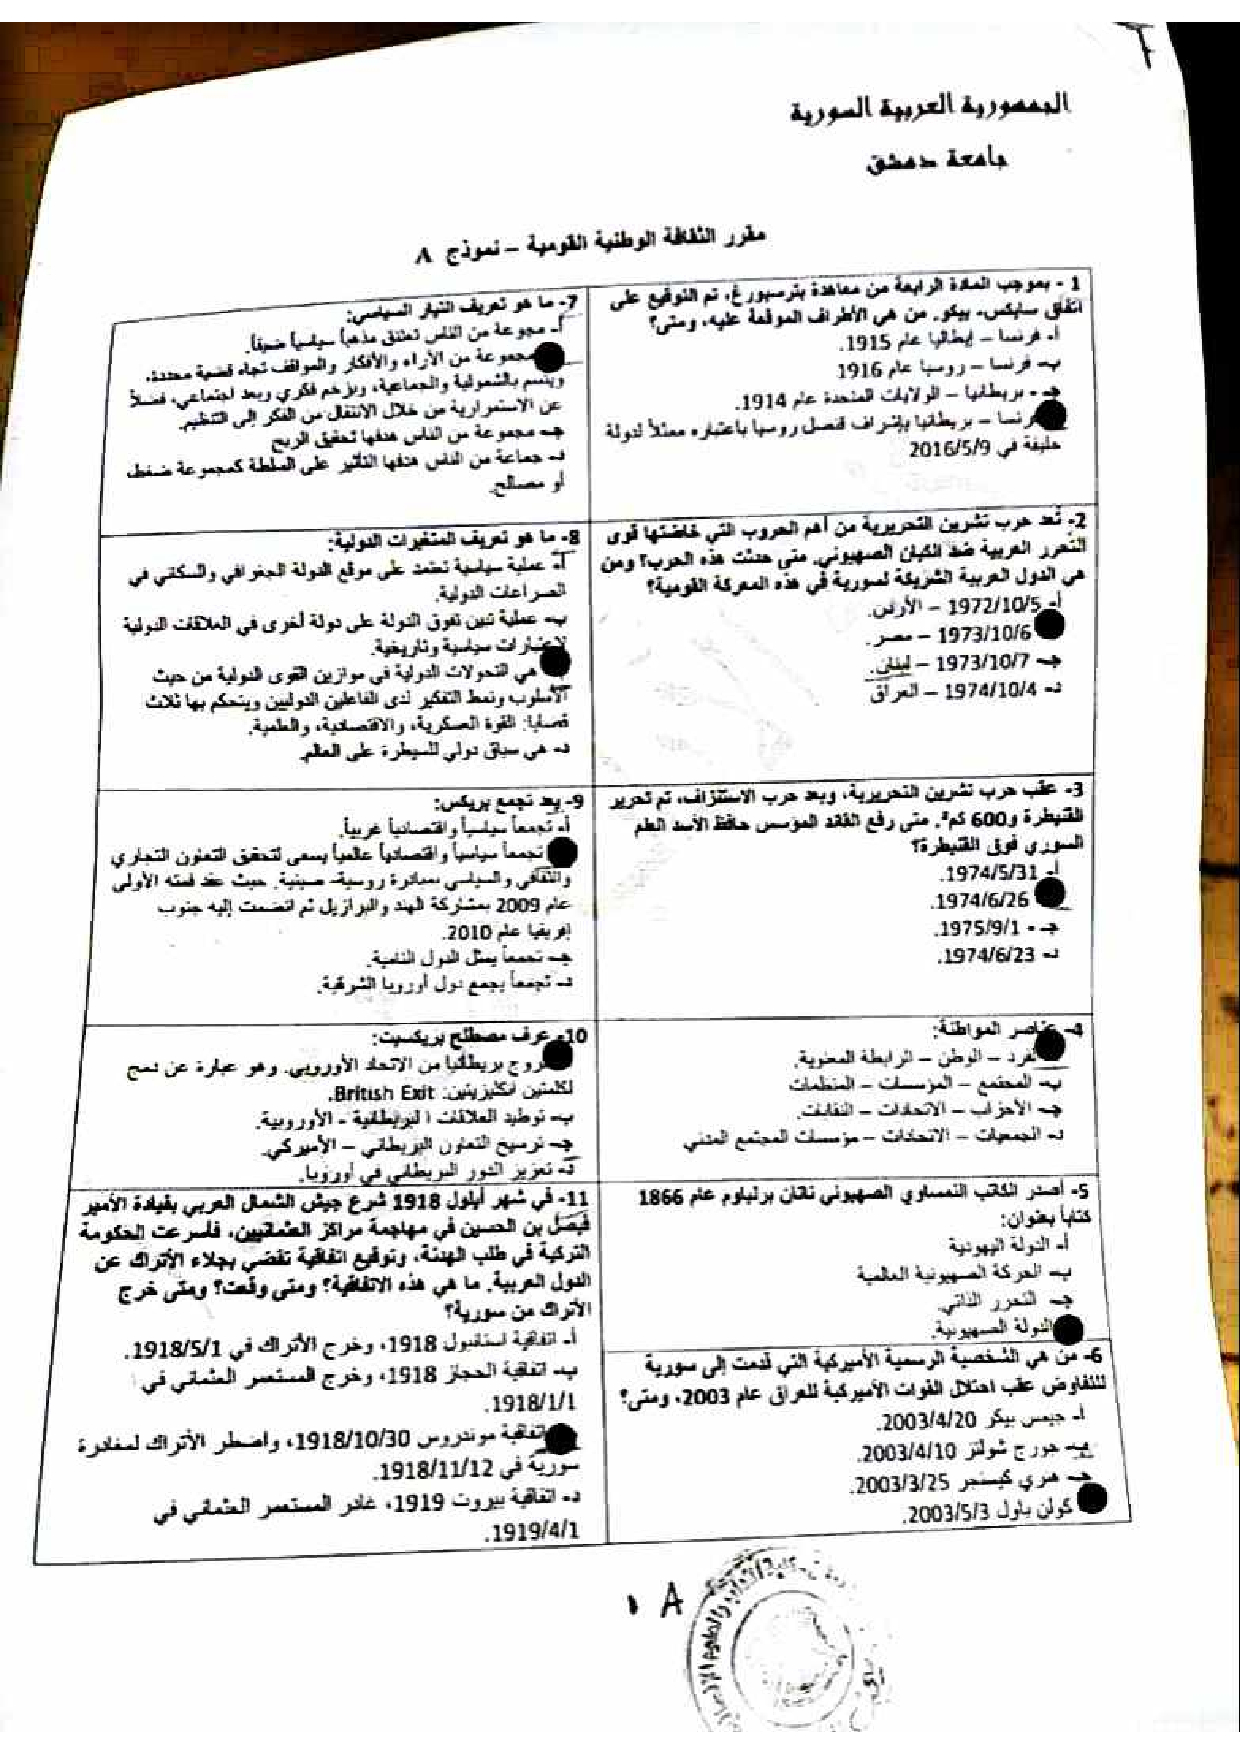 الجمهورية العربية السورية
جامعة دمشق
مقرر الثقافة الوطنية القومية – نموذج A
1 - بموجب المادة الرابعة من معاهدة بترسبورغ، تم التوقيع على
اتفاق سايكس- بيكو. من هي الأطراف الموقعة عليه، ومتى؟
أ- فرنسا – إيطاليا عام 1915.
ب- فرنسا – روسيا عام 1916
جـ - بريطانيا – الولايات المتحدة عام 1914.
فرنسا – بريطانيا بإشراف قنصل روسيا باعتباره ممثلاً لدولة
حليفة في 2016/5/9
2- تُعد حرب تشرين التحريرية من أهم الحروب التي خاضتها قوى
التحرر العربية ضد الكيان الصهيوني. متى حدثت هذه الحرب؟ ومن
هي الدول العربية الشريكة لسورية في هذه المعركة القومية؟
أ- 1972/10/5 – الأردن.
1973/10/6 – مصر.
جـ- 1973/10/7 – لبنان.
د- 1974/10/4 – العراق
3- عقب حرب تشرين التحريرية، وبعد حرب الاستنزاف، تم تحرير
القنيطرة و600 كم². متى رفع القائد المؤسس حافظ الأسد العلم
السوري فوق القنيطرة؟
أ- 1974/5/31.
1974/6/26.
جـ - 1975/9/1.
د- 1974/6/23.
4- عناصر المواطنة:
الفرد – الوطن – الرابطة المعنوية.
ب- المجتمع – المؤسسات – المنظمات
جـ- الأحزاب – الاتحادات – النقابات.
د- الجمعيات – الاتحادات – مؤسسات المجتمع المدني
5- أصدر الكاتب النمساوي الصهيوني ناتان برنباوم عام 1866
كتاباً بعنوان:
أ- الدولة اليهودية
ب- الحركة الصهيونية العالمية
جـ- التحرر الذاتي.
الدولة الصهيونية.
6- من هي الشخصية الرسمية الأميركية التي قدمت إلى سورية
للتفاوض عقب احتلال القوات الأميركية للعراق عام 2003، ومتى؟
أ- جيمس بيكر 2003/4/20.
ب- جورج شولتز 2003/4/10.
جـ- هنري كيسنجر 2003/3/25.
كولن باول 2003/5/3.
7- ما هو تعريف التيار السياسي:
أ- مجوعة من الناس تعتنق مذهباً سياسياً ضيقاً.
مجموعة من الآراء والأفكار والمواقف تجاه قضية محددة،
ويتسم بالشمولية والجماعية، وبزخم فكري وبعد اجتماعي، فضلاً
عن الاستمرارية من خلال الانتقال من الفكر إلى التنظيم.
جـ- مجموعة من الناس هدفها تحقيق الربح
د- جماعة من الناس هدفها التأثير على السلطة كمجموعة ضغط
أو مصالح.
8- ما هو تعريف المتغيرات الدولية:
أ- عملية سياسية تعتمد على موقع الدولة الجغرافي والسكاني في
الصراعات الدولية.
ب- عملية تبين تفوق الدولة على دولة أخرى في العلاقات الدولية
لاعتبارات سياسية وتاريخية.
هي التحولات الدولية في موازين القوى الدولية من حيث
الأسلوب ونمط التفكير لدى الفاعلين الدوليين ويتحكم بها ثلاث
قضايا: القوة العسكرية، والاقتصادية، والعلمية.
د- هي سباق دولي للسيطرة على العالم.
9- يعد تجمع بريكس:
أ- تجمعاً سياسياً واقتصادياً غربياً.
تجمعاً سياسياً واقتصادياً عالمياً يسعى لتحقيق التعاون التجاري
والثقافي والسياسي بمبادرة روسية- صينية. حيث عقد قمته الأولى
عام 2009 بمشاركة الهند والبرازيل ثم انضمت إليه جنوب
إفريقيا عام 2010.
جـ- تجمعاً يمثل الدول النامية.
د- تجمعاً يجمع دول أوروبا الشرقية.
10- عرف مصطلح بريكسيت:
خروج بريطانيا من الاتحاد الأوروبي. وهو عبارة عن دمج
لكلمتين انكليزيتين: British Exit.
ب- توطيد العلاقات البريطانية - الأوروبية.
جـ- ترسيخ التعاون البريطاني – الأميركي.
د- تعزيز الدور البريطاني في أوروبا.
11- في شهر أيلول 1918 شرع جيش الشمال العربي بقيادة الأمير
فيصل بن الحسين في مهاجمة مراكز العثمانيين، فأسرعت الحكومة
التركية في طلب الهدنة، وتوقيع اتفاقية تقضي بجلاء الأتراك عن
الدول العربية. ما هي هذه الاتفاقية؟ ومتى وقعت؟ ومتى خرج
الأتراك من سورية؟
أ- اتفاقية استانبول 1918، وخرج الأتراك في 1918/5/1.
ب- اتفاقية الحجاز 1918، وخرج المستعمر العثماني في
1918/1/1.
اتفاقية موندروس 1918/10/30، واضطر الأتراك لمغادرة
سورية في 1918/11/12.
د- اتفاقية بيروت 1919، غادر المستعمر العثماني في
1919/4/1.
١ A